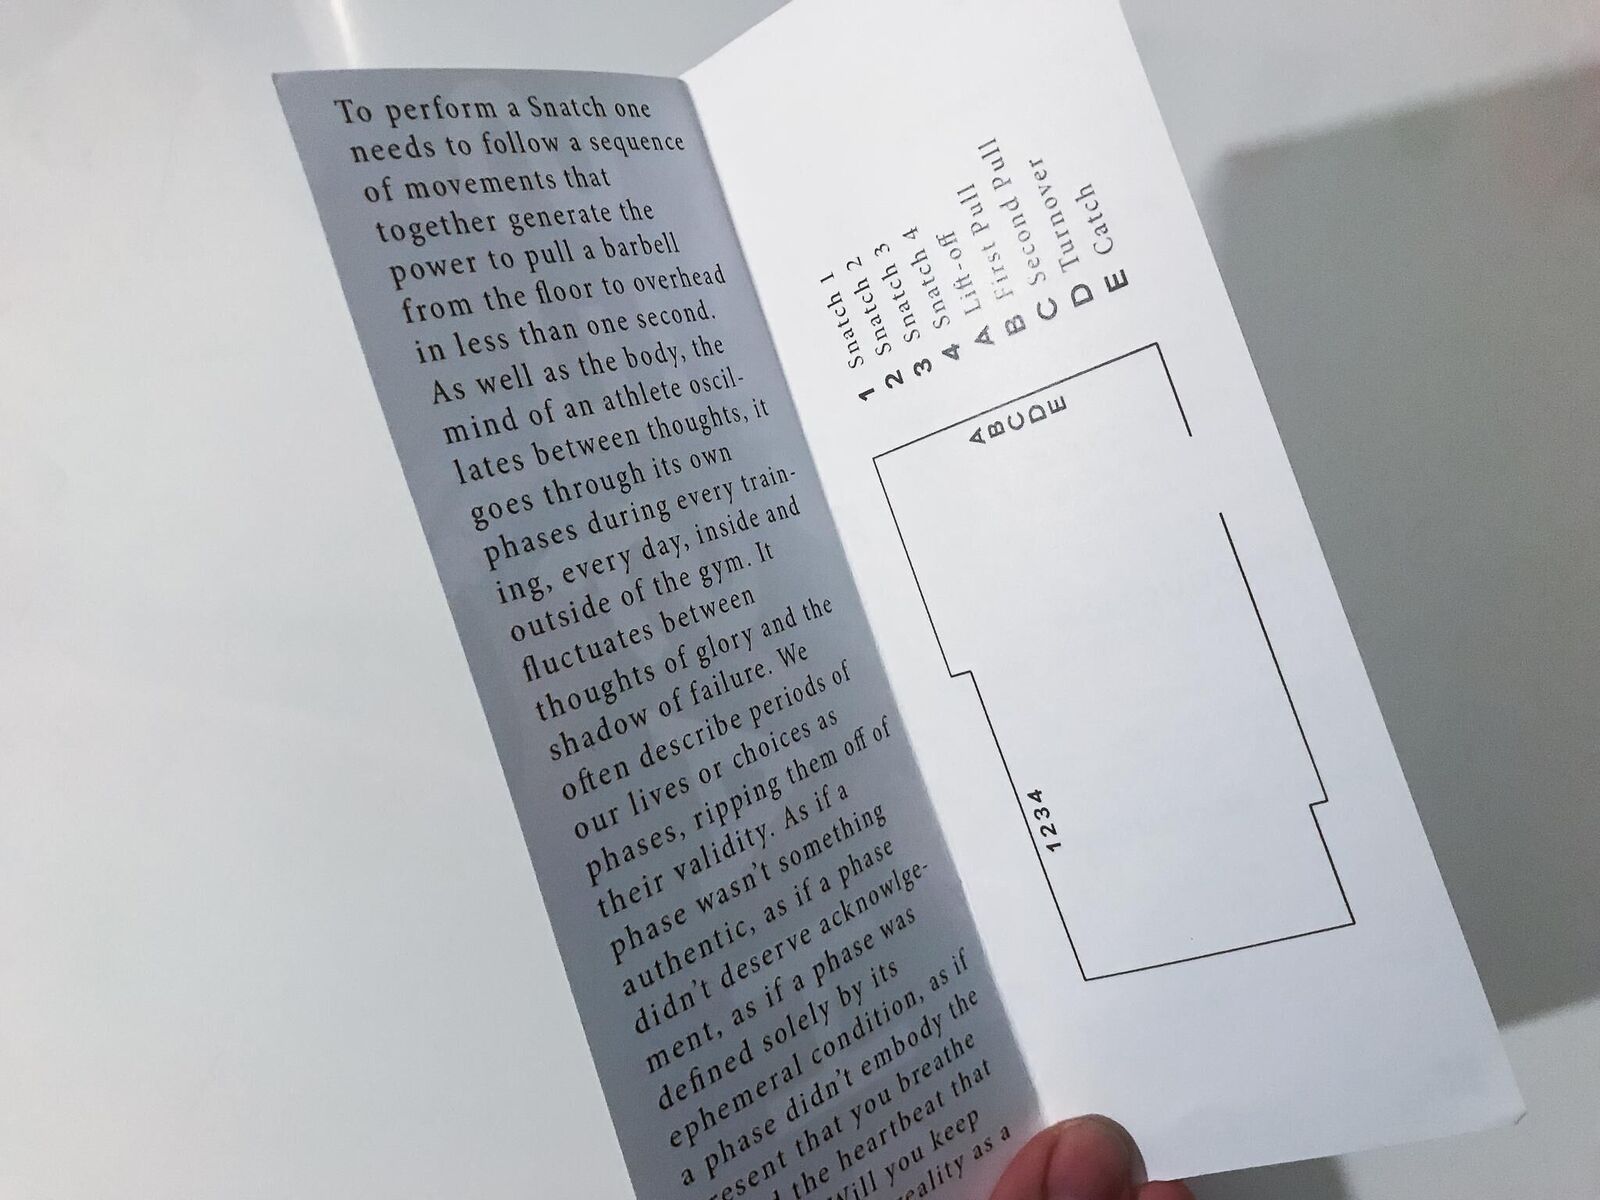 To perform a Snatch one
needs to follow a sequence
of movements that
together generate the
power to pull a barbell
from the floor to overhead
in less than one second.
As well as the body, the
mind of an athlete oscil-
lates between thoughts, it
goes through its own
phases during every train-
ing, every day, inside and
outside of the gym. It
fluctuates between
thoughts of glory and the
shadow of failure. We
often describe periods of
our lives or choices as
phases, ripping them off of
their validity. As if a
phase wasn't something
authentic, as if a phase
didn't deserve acknowlge-
ment, as if a phase was
defined solely by its
ephemeral condition, as if
a phase didn't embody the
that you breathe
the heartbeat that
Will you keep
as a
1 Snatch 1
2 Snatch 2
3 Snatch 3
4 Snatch 4
A Lift-off
B First Pull
C Second Pull
D Turnover
E Catch
ABCDE
1234